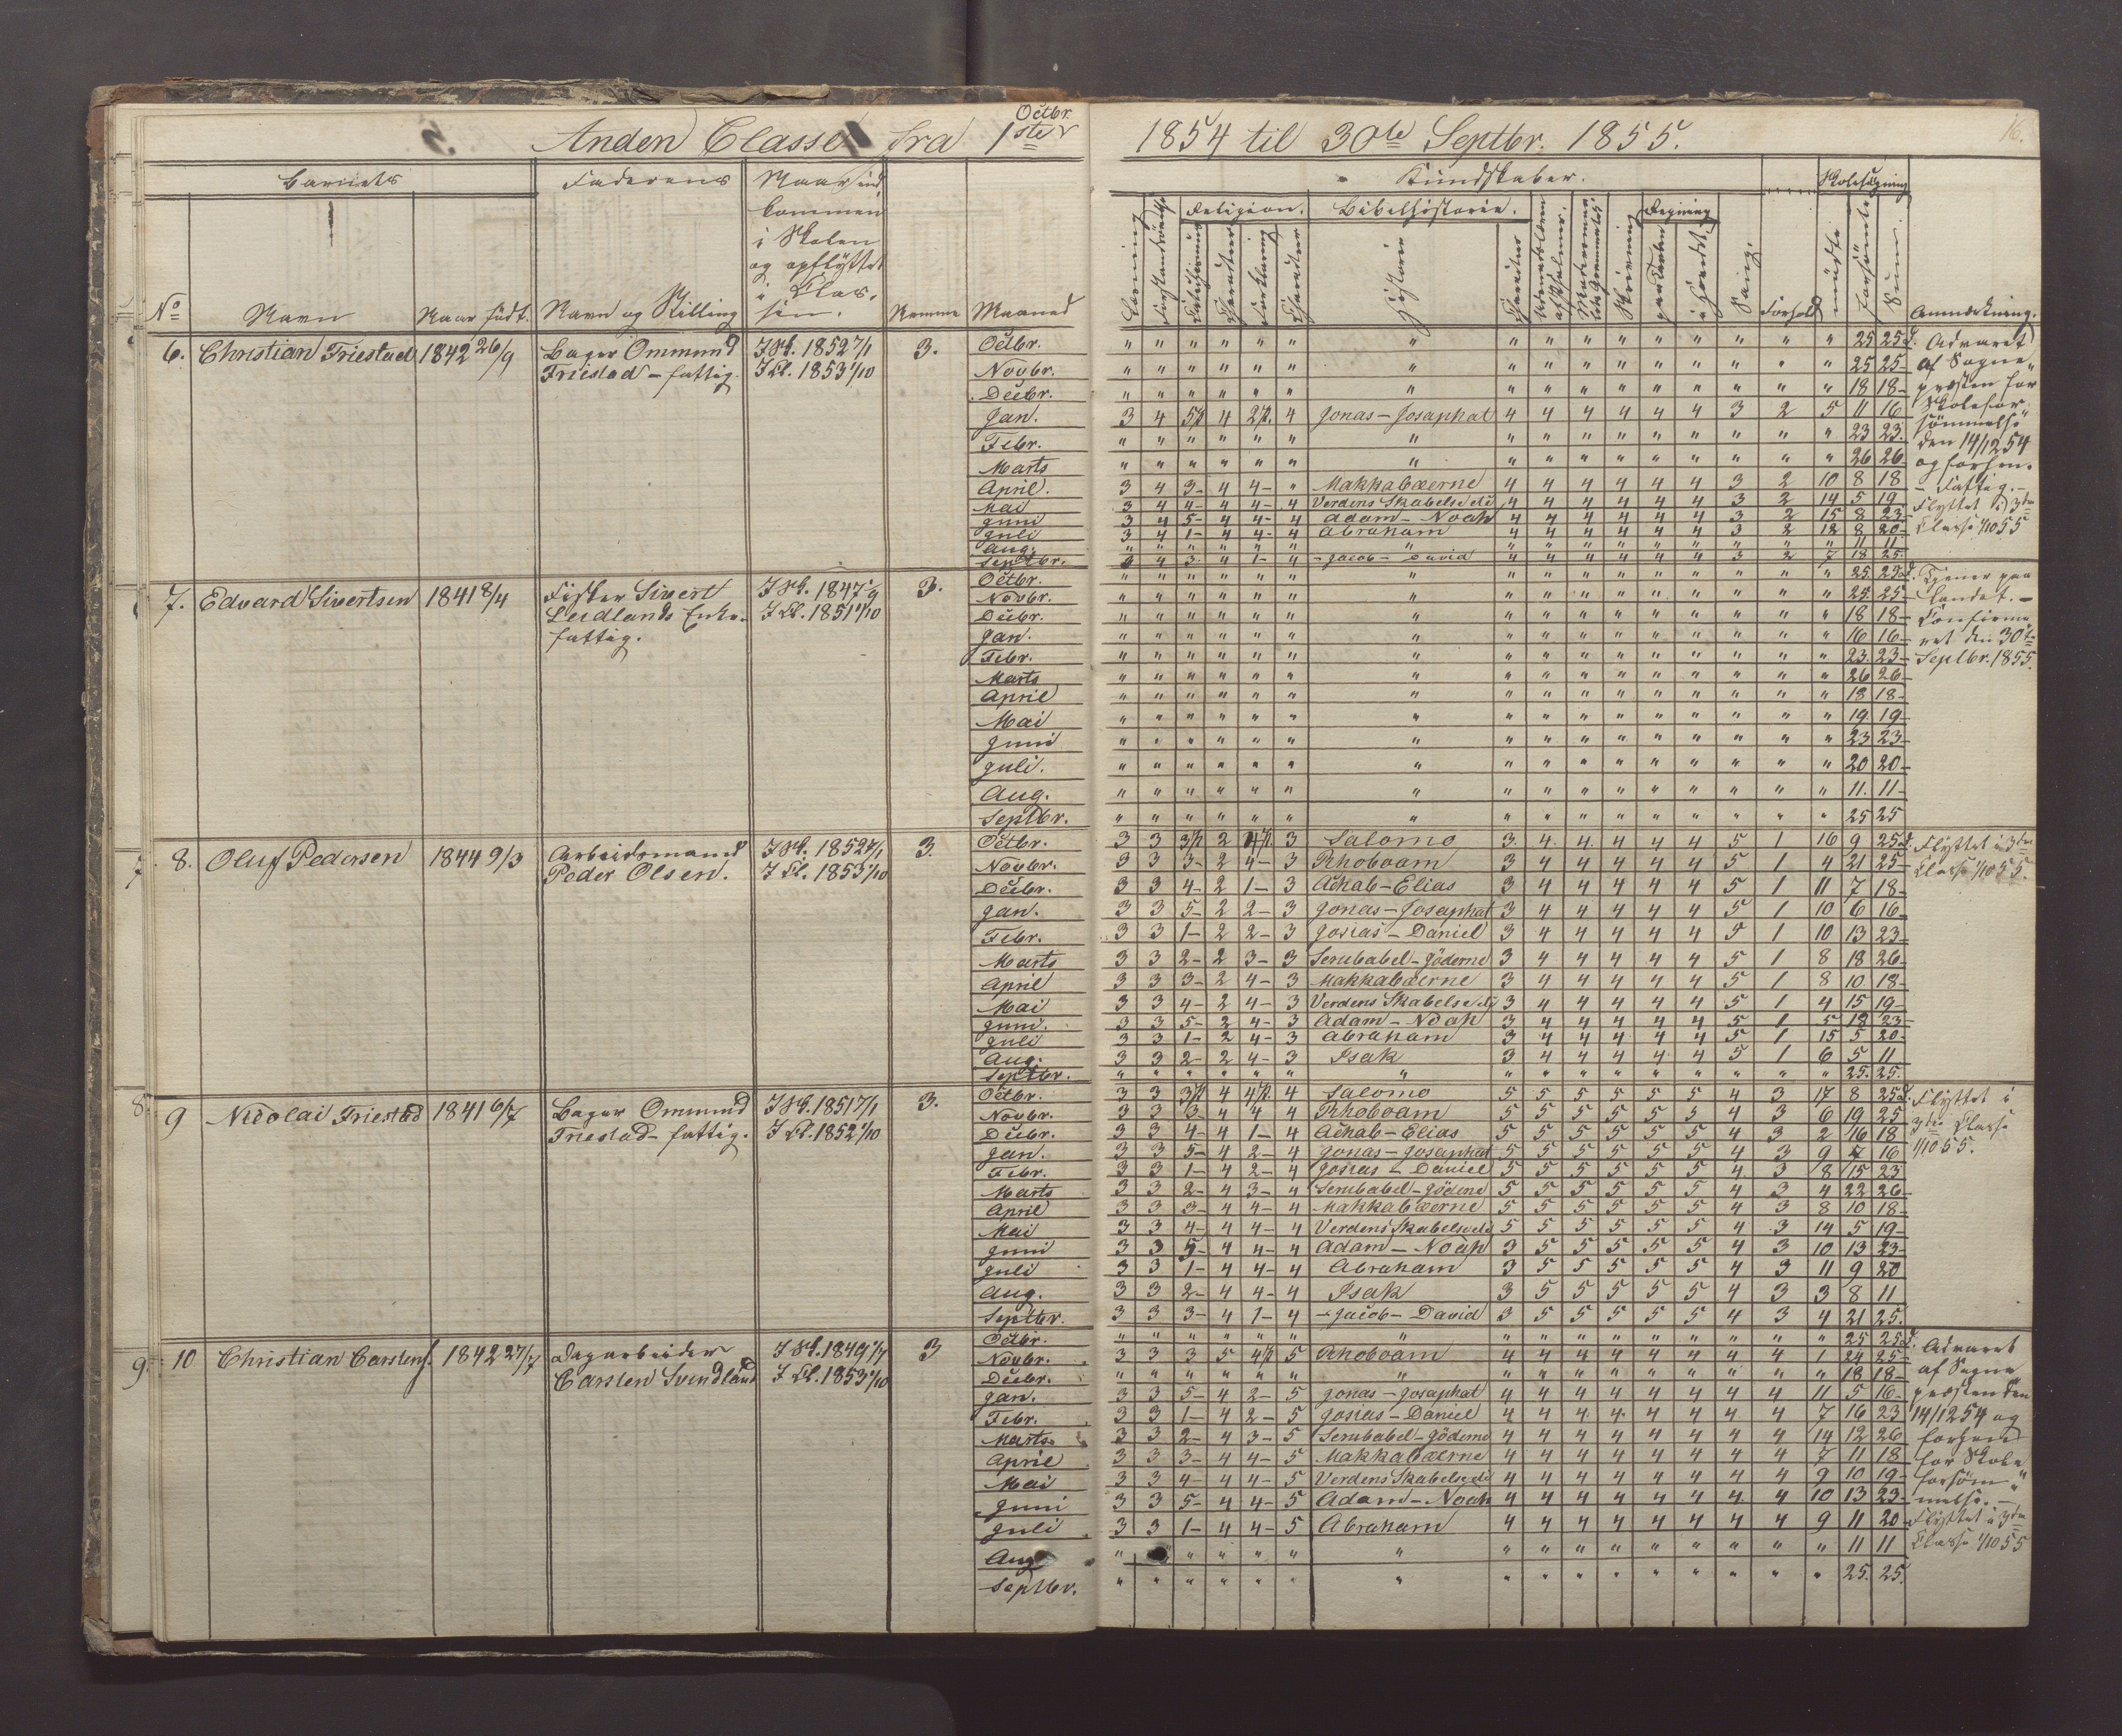 Octbr.
Anden Classe fra 1ste
1854 til 30te Septbr. 1855.
16.
Barnets Faderens Naar ind
kommen
i Skolen
og opflyttet
i Clas-
sen.
No Navn Naar født. Navn og Stilling Nemme Maaned
Kundskaber. Skolesøgning
Religion. Bibelhistorie. Regning
Læsning Forklaring Charakter Historie Charakter Skrivning paa Tavlen i Hovedet Sang. Forhold mødte forsømte Sum. Anmærkning.
6. Christian Friestad 1842 26/9 Bager Ommund I Sk. 1852 7/1 3. Octbr. " " " " " " " " " " " " " " " " 25 25
Friestad – fattig. I Cl. 1853 1/10 Novbr. " " " " " " " " " " " " " " " " 25 25
Decbr. " " " " " " " " " " " " " " " " 18 18
Jan. 3 4 5/2 4 2/2. 4 Jonas – Josaphat 4 4 4 4 4 4 3 2 5 11 16
Febr. " " " " " " " " " " " " " " " " 23 23.
Marts " " " " " " " " " " " " " " " " 26 26
April. 3 4 3 – 4 4 – " Makkabæerne 4 4 4 4 4 4 3 2 10 8 18
Mai 3 4 4 – 4 4 – 4 Verdens Skabelse 4 4 4 4 4 4 3 2 14 5 19
Juni 3 4 5 – 4 4 – 4 Adam – Noah 4 4 4 4 4 4 3 2 15 8 23
Juli 3 4 1 – 4 4 – 4 Abraham 4 4 4 4 4 4 3 2 12 8 20
Aug. " " " " " " " " " " " " " " " " 11 11
Septbr. 3 4 3 4 1 – 4 – Jacob – David 4 4 4 4 4 4 3 2 7 18 25
Advaret
af Sogne
præsten for
Skolefor
sømmelse
den 14/12 54
og forhen.
– Fattig. –
Flyttet i 3die
Classe 1/10 55
7. Edvard Sivertsen 1841 8/4 Fisker Sivert I Sk. 1847 3. Octbr. " " " " " " " " " " " " " " " " 25. 25
Leidlands Enke. I Cl. 1851 1/10 Novbr. " " " " " " " " " " " " " " " " 25. 25
fattig. Decbr. " " " " " " " " " " " " " " " " 18 18
Jan. " " " " " " " " " " " " " " " " 16 16
Febr. " " " " " " " " " " " " " " " " 23. 23
Marts " " " " " " " " " " " " " " " " 26 26
April " " " " " " " " " " " " " " " " 18 18
Mai " " " " " " " " " " " " " " " " 19. 19
Juni " " " " " " " " " " " " " " " " 23 23
Juli. " " " " " " " " " " " " " " " " 20 20
Aug. " " " " " " " " " " " " " " " " 11. 11
Septbr. " " " " " " " " " " " " " " " " 25 25
Tjener paa
Landet. –
Confirme
ret den 30te
Septbr. 1855.
8. Oluf Pedersen 1844 9/3 Arbeidsmand I Sk. 1852 7/1 3. Octbr. 3 3 3/2 2 4/2. 3 Salomo 3. 4. 4. 4 4 4 5 1 16 9 25
Peder Olsen. I Cl. 1853 1/10 Novbr. 3 3 3 – 2 4 – 3 Rhoboam 3 4 4 4 4 4 5 1 4 21 25
Decbr. 3 3 4 – 2 1 – 3 Achab – Elias 3 4 4 4 4 4 5 1 11 7 18
Jan. 3 3 5 – 2 2 – 3 Jonas – Josaphat 3 4 4 4 4 4 5 1 10 6 16
Febr. 3 3 1 – 2 2 – 3 Josias – Daniel 3 4 4 4 4 4 5 1 10 13 23
Marts 3 3 2 – 2 3 – 3 Serubabel – Jöderne 3 4 4 4 4 4 5 1 8 18 26
April 3 3 3 – 2 4 – 3 Makkabæerne 3 4 4 4 4 4 5 1 8 10 18
Mai 3 3 4 – 2 4 – 3 Verdens Skabelse 3 4 4 4 4 4 5 1 4 15 19
Juni. 3 3 5 – 2 4 – 3 Adam – Noah 3 4 4 4 4 4 5 1 5 18 23
Juli 3 3 1 – 2 4 – 3 Abraham 3 4 4 4 4 4 5 1 15 5 20
Aug. 3 3 2 – 2 4 – 3 Isak 3 4 4 4 4 4 5 1 6 5 11
Septbr. " " " " " " " " " " " " " " " " 25. 25.
Flyttet i 3die
Classe 1/10 55.
9 Nicolai Friestad 1841 6/7 Bager Ommund I Sk. 1851 7/1 3. Octbr. 3 3 3/2 4 4/2. 4 Salomo 5 5 5 5 5 5 4 3 17 8 25
Friestad – fattig. I Cl. 1852 1/10 Novbr. 3 3 3 4 4 4 Rhoboam 5 5 5 5 5 5 4 3 6 19 25
Decbr. 3 3 4 – 4 1 – 4 Achab – Elias 5 5 5 5 5 5 4 3 2 16 18
Jan. 3 3 5 – 4 2 – 4 Jonas – Josaphat 5 5 5 5 5 5 4 3 9 7 16
Febr. 3 3 1 – 4 2 – 4 Josias – Daniel 5 5 5 5 5 5 4 3 8 15 23
Marts 3 3 2 – 4 3 – 4 Serubabel – Jöderne 5 5 5 5 5 5 4 3 4 22 26
April 3 3 3 – 4 4 – 4 Makkabæerne 5 5 5 5 5 5 4 3 8 10 18
Mai 3 3 4 – 4 4 – 4 Verdens Skabelse 5 5 5 5 5 5 4 3 14 5 19
Juni 3 3 5 – 4 4 – 4 Adam – Noah 3 5 5 5 5 5 4 3 10 13 23
Juli 3 3 1 – 4 4 – 4 Abraham 3 5 5 5 5 5 4 3 11 9 20
Aug. 3 3 2 – 4 4 – 4 Isak 3 5 5 5 5 5 4 3 3 8 11
Septbr. 3 3 3 – 4 1 – 4 – Jacob – David 3 5 5 5 5 5 4 3 4 21 25.
Flyttet i
3die Classe
1/10 55.
10 Christian Carstens. 1842 27/7 Dagarbeider I Sk. 1849 1/7 3 Octbr. " " " " " " " " " " " " " " " " 25 25
Carsten Svindland I Cl. 1853 1/10 Novbr. 3 3 3 5 4/2 5 Rhoboam 4 4 4 4 4 4 4 4 1 24 25
Decbr. " " " " " " " " " " " " " " " " 18 18
Jan. 3 3 5 – 4 2 – 5 Jonas – Josaphat 4 4 4 4 4 4 4 4 11 5 16
Febr. 3 3 1 – 4 2 – 5 Josias – Daniel 4 4 4 4 4 4 4 4 7 16 23
Marts 3 3 2 – 4 3 – 5 Serubabel – Jöderne 4 4 4 4 4 4 4 4 14 12 26
April 3 3 3 – 4 4 – 5 Makkabæerne 4 4 4 4 4 4 4 4 7 11 18
Mai 3 3 4 – 4 4 – 5 Verdens Skabelse 4 4 4 4 4 4 4 4 9 10 19
Juni 3 3 5 – 4 4 – 5 Adam – Noah 4 4 4 4 4 4 4 4 10 13 23
Juli 3 3 1 – 4 4 – 5 Abraham 4 4 4 4 4 4 4 4 9 11 20
Aug " " " " " " " " " " " " " " " 11 11
Septbr. " " " " " " " " " " " " " " " " 25. 25.
Advaret
af Sogne
præsten den
14/12 54 og
forhen
for Skole
forsøm
melse. –
Flyttet i 3die
Classe 1/10 55
7
8
9.